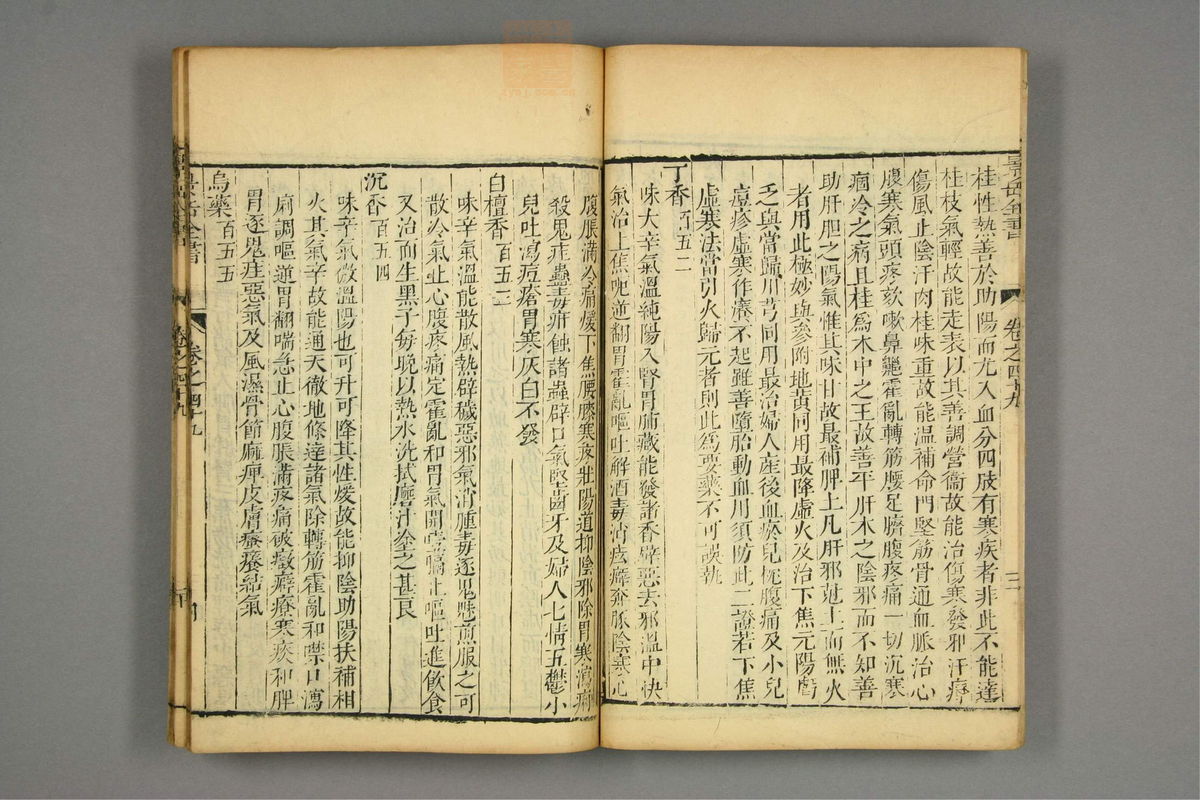 景岳全書 卷之四十九 三
桂性熱善於助陽而尤入血分四肢有寒疾者非此不能達
桂枝氣輕故能走表以其善調營衞故能治傷寒發邪汗療
傷風止陰汗肉桂味重故能温補命門堅筋骨通血脈治心
腹寒氣頭疼欬嗽鼻齆霍亂轉筋腰足臍腹疼痛一切沉寒
痼冷之病且桂爲木中之王故善平肝木之陰邪而不知善
助肝胆之陽氣惟其味甘故最補脾土凡肝邪尅土而無火
者用此極妙與參附地黃同用最降虛火及治下焦元陽虧
乏與當歸川芎同用最治婦人産後血瘀兒枕腹痛及小兒
痘疹虛寒作癢不起雖善墮胎動血用須防此二證若下焦
虛寒法當引火歸元者則此爲要藥不可誤執
丁香百五二
味大辛氣溫純陽入腎胃肺臟能發諸香辟惡去邪溫中快
氣治上焦呃逆翻胃霍亂嘔吐解酒毒消痃癖奔豚陰寒心
腹脹滿冷痛煖下焦腰膝寒疼壯陽道抑陰邪除胃寒瀉痢
殺鬼疰蠱毒疳蝕諸蟲辟口氣堅齒牙及婦人七情五鬱小
兒吐瀉痘瘡胃寒灰白不發
白檀香百五三
味辛氣溫能散風熱辟穢惡邪氣消腫毒逐鬼魅煎服之可
散冷氣止心腹疼痛定霍亂和胃氣開噎膈止嘔吐進飲食
又治面生黑子每晚以熱水洗拭磨汁塗之甚良
沉香百五四
味辛氣微溫陽也可升可降其性煖故能抑陰助陽扶補相
火其氣辛故能通天徹地條達諸氣除轉筋霍亂和噤口瀉
痢調嘔逆胃翻喘急止心腹脹滿疼痛破癥癖療寒痰和脾
胃逐鬼疰惡氣及風濕骨節麻痺皮膚瘙癢結氣
烏藥百五五
景岳全書 卷之四十九 四